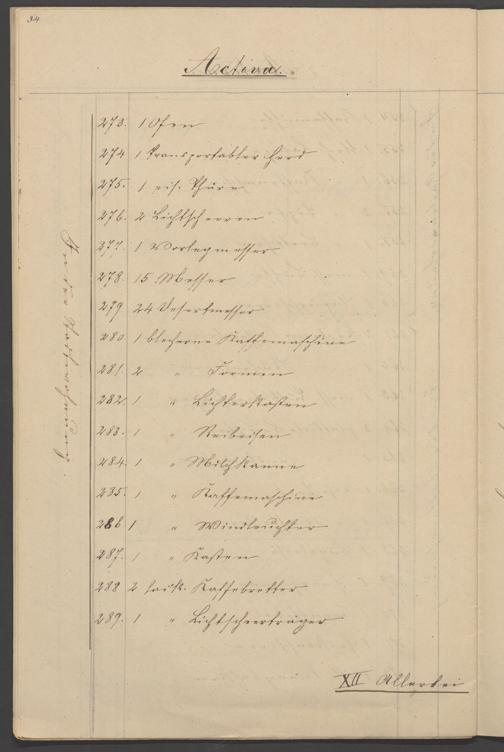 34
Activa.
273. 1 Ofen
274 1 Transportabler Herd
275. 1 eis. Thüre
276. 2 Lichtscherren
277. 1 Vorlegmesser
278. 15 Messer
279 24 Desertmesser
280 1 blecherne Kaffemaschine
281 2 " Formen
282. 1 " Lichterkasten
283. 1 " Reibeisen
284. 1 " Milchkanne
285. 1 " Kaffemaschine
286 1 " Windleuchter
287. 1 " Kasten
288 2 lack. Kaffebretter
289. 1 " Lichtscheerträger
XII Allerlei